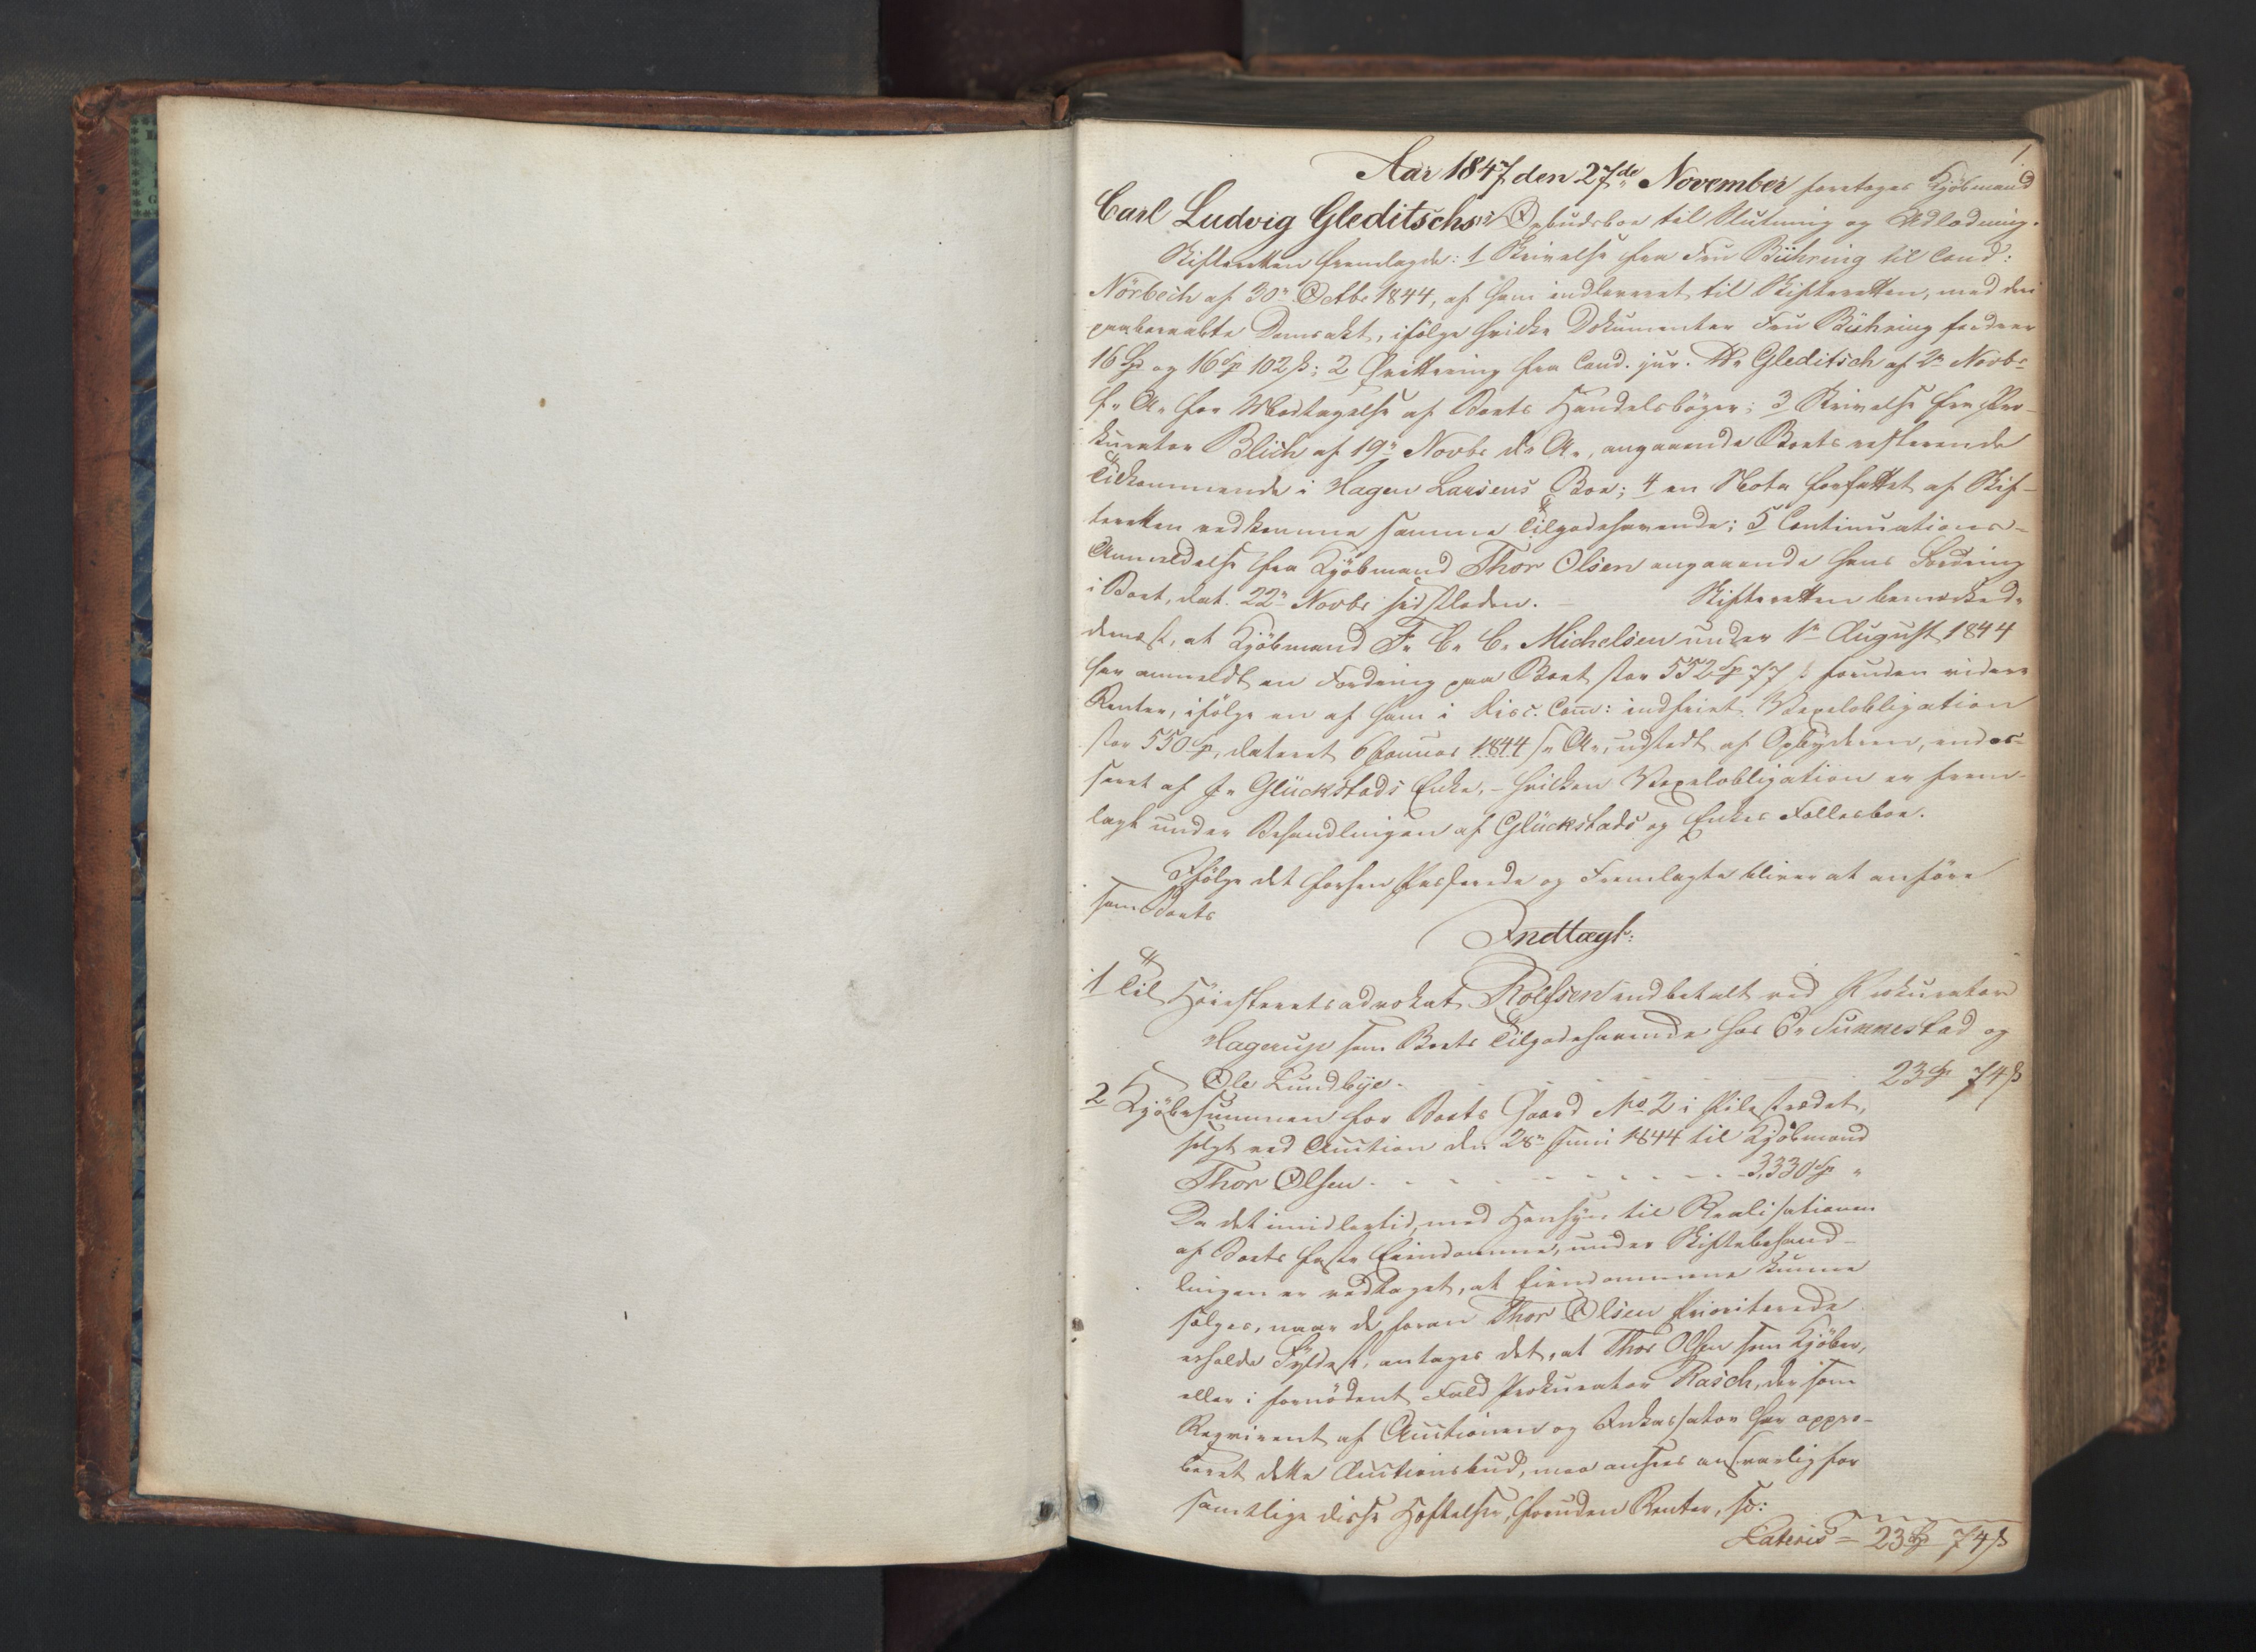 1
Aar 1847 den 27de November foretoges Kjöbmand
Carl Ludvig Gleditschs Opbudsboe til Slutning og Udlodning.
Skifteretten fremlagde: 1 Skrivelse fra Fru Bühring til Cand:
Nörbech af 30. Octbr 1844, af ham indleveret til Skifteretten, med den
paaberaabte Domsakt, ifölge hvilke Dokumenter Fru Bühring fordrer
16 Sp og 16 Sp 102 ß; 2 Qvittering fra Cand. jur. Gleditsch af 2 Novbr
f. A. for Modtagelse af Boets Handelsböger; 3 Skrivelse fra Pro-
kurator Blich af 19 Novbr d. A., angaaende Boets resterende
Tilkommende i Hagen Larsens Boe; 4 en Nota forfattet af Skif-
teretten vedkomme samme Tilgodehavende; 5 Continuations-
Anmeldelse fra Kjöbmand Thor Olsen angaaende hans Fordring
i Boet, dat. 22 Novbr sidstleden. – Skifteretten bemærkede
dernæst, at Kjöbmand F. C. C. Michelsen under 1 August 1844
har anmeldt en Fordring paa Boet stor 552 Sp 77 ß foruden videre
Renter, ifölge en af ham i Disc. Com: indfriet Vexelobligation
stor 550 Sp, dateret 6 Januar 1844 s. A., udstedt af Opbyderen, endos-
seret af J. Glückstads Enke, – hvilken Vexelobligation er frem-
lagt under Behandlingen af Glückstads og Enkes Fællesboe.
Ifölge det forhen Passerede og Fremlagte bliver at anföre
som Boets
Indtægt:
1 Til Höiesteretsadvokat Rolfsen indbetalt ved Prokurator
Hagerup som Boets Tilgodehavende hos C. Sunnestad og
Ole Lundbye - 23 Sp 74 ß
2 Kjöbesummen for Boets Gaard No 2 i Pilestrædet,
solgt ved Auction den 28 Juni 1844 til Kjöbmand
Thor Olsen - 3,330 Sp "
Da det imidlertid, med Hensyn til Realisationen
af Boets faste Eiendomme, under Skiftebehand-
lingen er vedtaget, at Eiendommene kunne
sælges, naar de foran Thor Olsen Prioriterede
erholde Fyldest, antages det, at Thor Olsen som Kjöber,
eller i fornödent Fald Prokurator Rasch, der som
Reqvirent af Auctionen og Inkassator har appro-
beret dette Auctionsbud, maa ansees ansvarlig for
samtlige disse Hæftelser, foruden Renter, så:
Lateris = 23 Sp 74 ß